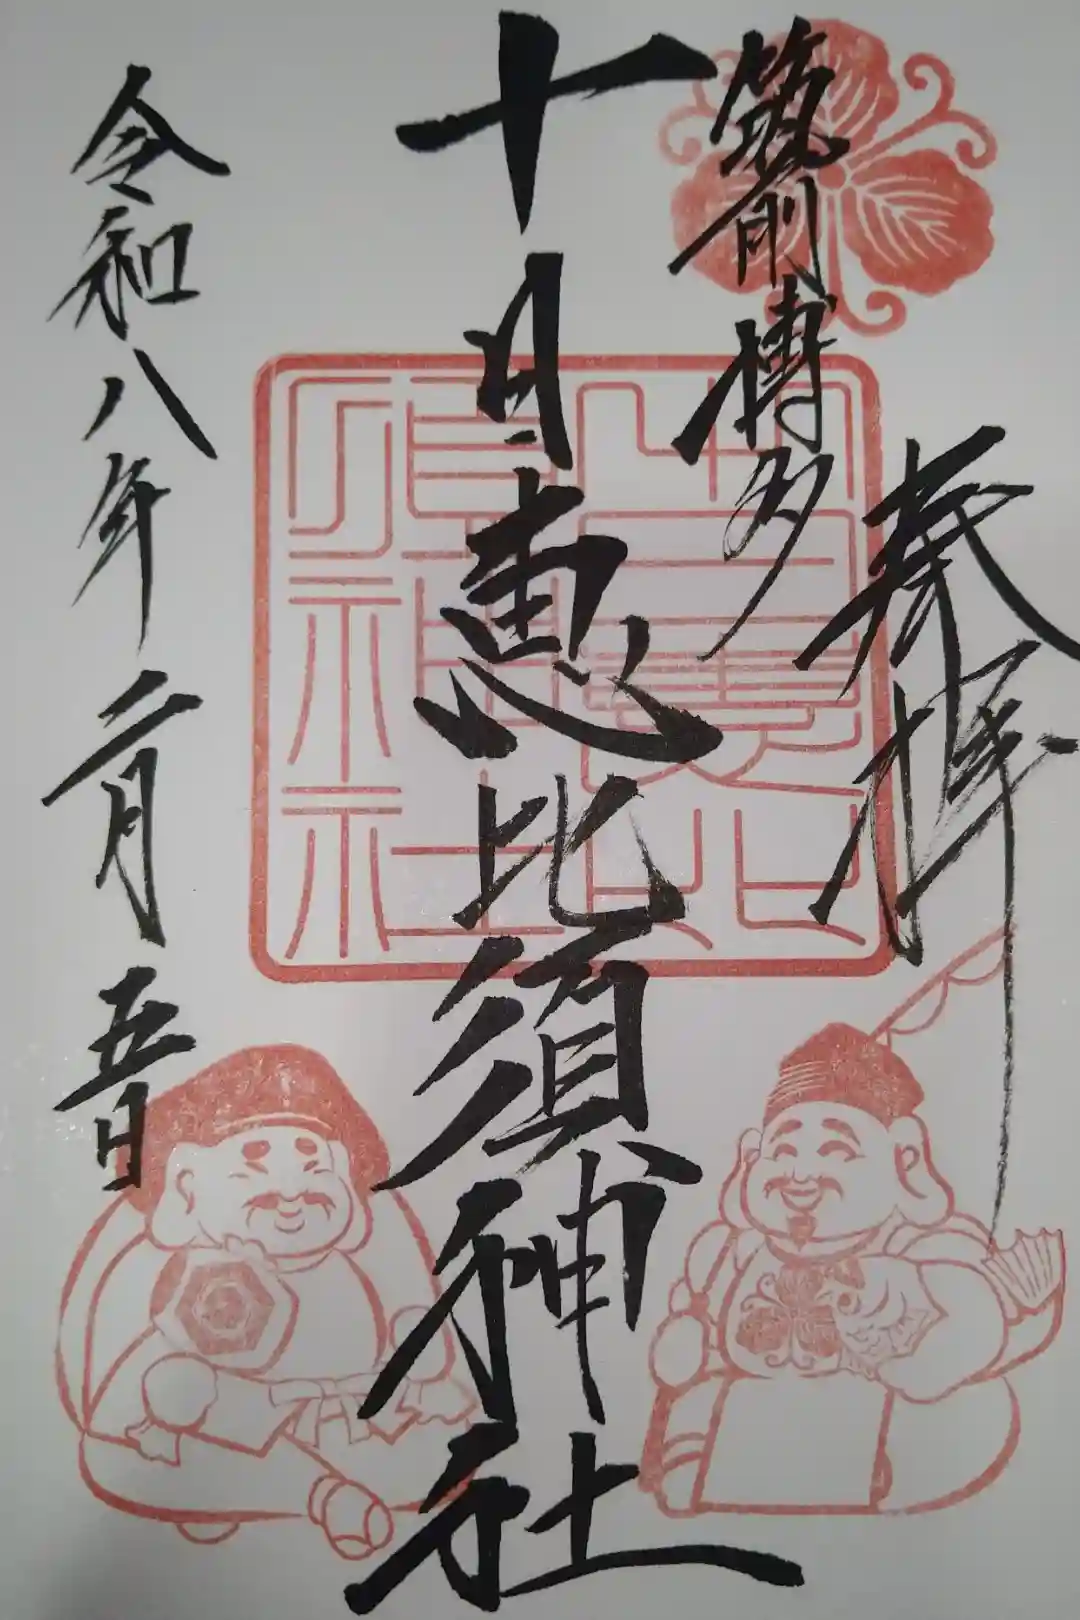 奉拝
筑前博多
十日恵比須神社
令和八年二月五日
須神社